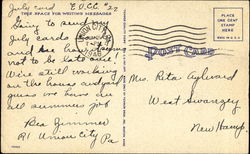 July card E.U.C.C. #22
THE SPACE FOR WRITING MESSAGES
Going to send my
July cards have
and see how
not to be late one.
We're still working
on the house and yard
guess we have an
all summer job
Bea Zimmer
R1 Union City
Pa
UNION CITY
POST CARD
PLACE
ONE CENT
STAMP
HERE
Mrs. Rita Aylward
West Swanzey
New Hamp.